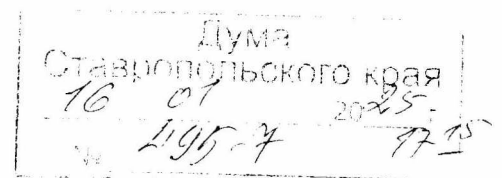 Дума
Ставропольского края
16 01 2025.
№ 495-7 17 15